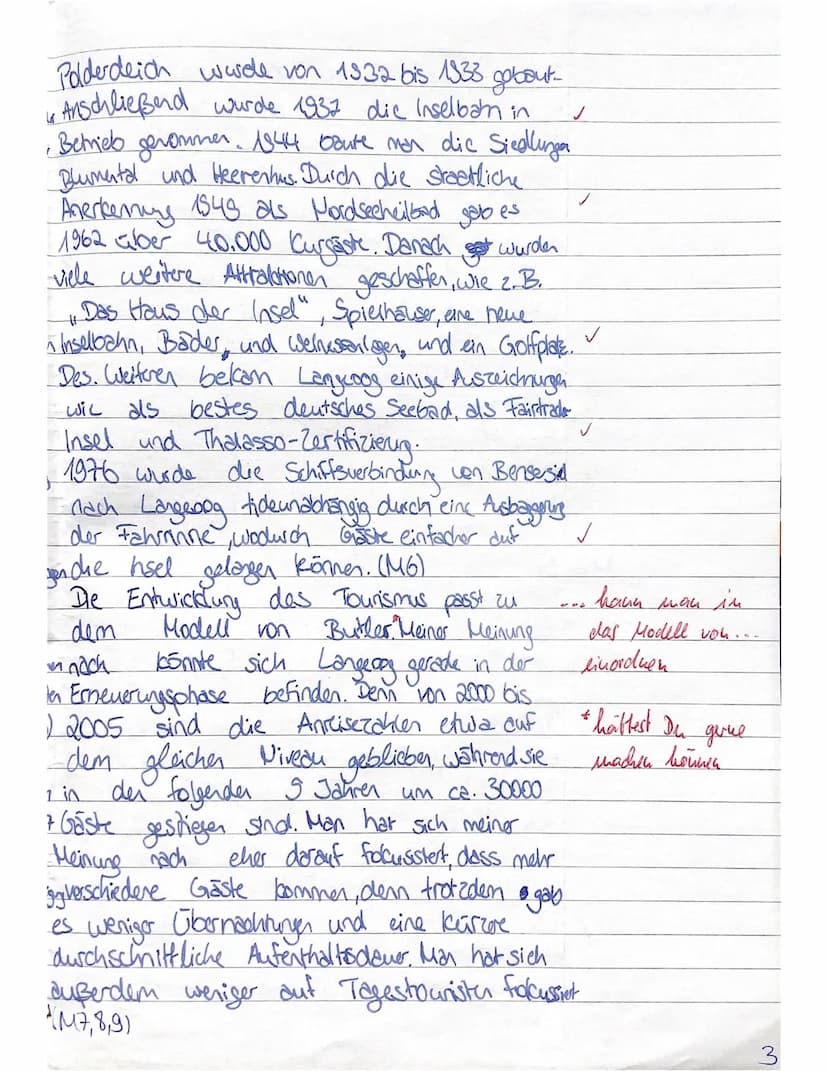 Polderdeich wurde von 1932 bis 1933 gebaut.
Anschließend wurde 1937 die Inselbahn in ✓
Betrieb genommen. 1944 baute man die Siedlungen
Blumental und Heerenhus. Durch die staatliche
Anerkennung 1949 als Nordseeheilbad gab es ✓
1962 über 40.000 Kurgäste. Danach wurden
viele weitere Attraktionen geschaffen, wie z.B.
„Das Haus der Insel“, Spielhäuser, eine neue
Inselbahn, Bäder, und Welnessanlagen, und ein Golfplatz. ✓
Des. Weiteren bekam Langeoog einige Auszeichnungen
wie als bestes deutsches Seebad, als Fairtrade
Insel und Thalasso-Zertifizierung. ✓
1976 wurde die Schiffsverbindung von Bensersiel
nach Langeoog tideunabhängig durch eine Ausbaggerung
der Fahrinne, wodurch Gäste einfacher auf ✓
die Insel gelangen können. (M6)
Die Entwicklung des Tourismus passt zu ... kann man in
dem Modell von Butler.* Meiner Meinung das Modell von...
nach könnte sich Langeoog gerade in der einordnen
Erneuerungsphase befinden. Denn von 2000 bis
2005 sind die Anreisezahlen etwa auf * hättest Du gerne
dem gleichen Niveau geblieben, während sie machen können
in den folgenden 9 Jahren um ca. 30000
Gäste gestiegen sind. Man hat sich meiner
Meinung nach eher darauf fokussiert, dass mehr
verschiedene Gäste kommen, denn trotzdem gab
es weniger Übernachtungen und eine kürzere
durchschnittliche Aufenthaltsdauer. Man hat sich
außerdem weniger auf Tagestouristen fokussiert
(M7,8,9)
3